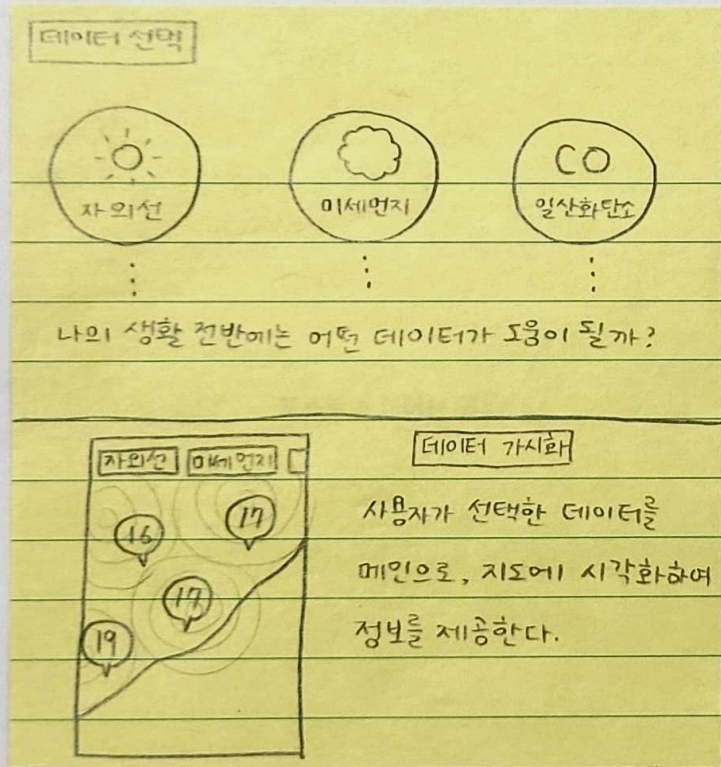 데이터 선택
CO
자외선 미세먼지 일산화탄소
나의 생활 전반에는 어떤 데이터가 도움이 될까?
자외선 미세먼지
16
17
17
19
데이터 가시화
사용자가 선택한 데이터를
메인으로, 지도에 시각화하여
정보를 제공한다.